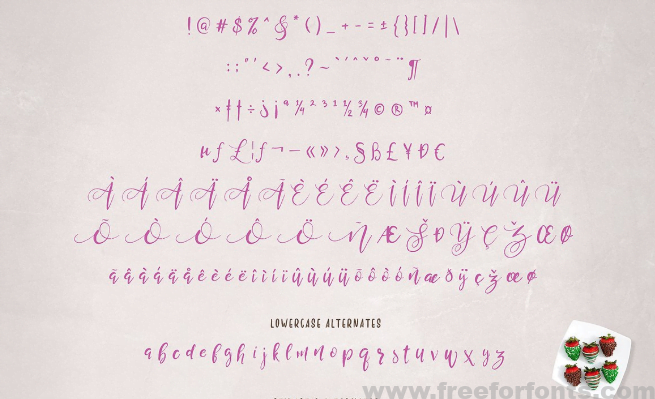 ! @ # $ % ^ & * ( ) _ + - = ± { } [ ] / | \
: ; " ' < > , . ? ~ ` ´ ^ ˇ ° ¯ ¨ ¶
× † ‡ ÷ j ¡ ª ¼ ² ³ ¹ ½ ¾ © ® ™ ¤
µ ƒ £ ¦ ƒ ¬ — « » › ‚ § ß £ ¥ Ð €
À Á Â Ä Å Ã È É Ê Ë Ì Í Î Ï Ù Ú Û Ü
Õ Ò Ó Ô Ö Ñ Æ Š Ð Ÿ Ç Ž Œ Ø
ã â à á ä å ê è é ë î ì í ï û ù ú ü õ ô ò ó ñ æ ð ÿ ç ž œ ø
LOWERCASE ALTERNATES
a b c d e f g h i j k l m n o p q r s t u v w x y z
www.freeforfonts.com